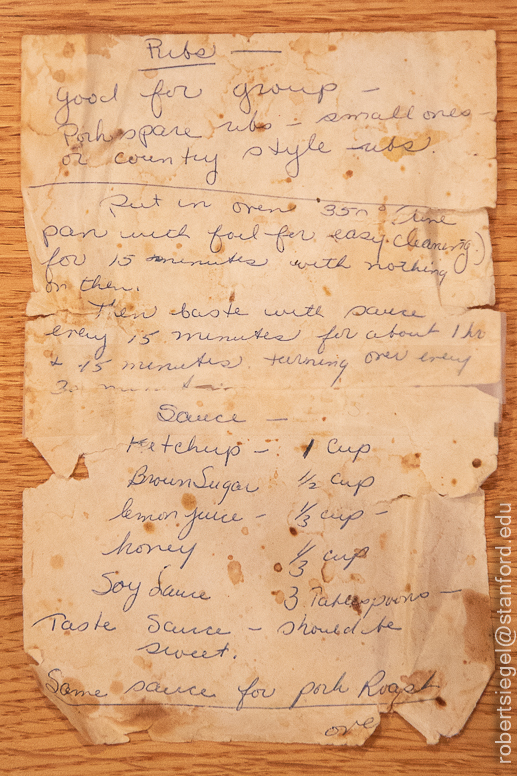 Ribs —
Good for group -
Pork spare ribs - small ones
or country style ribs.
Put in oven 350° (line
pan with foil for easy cleaning.)
for 15 minutes with nothing
on them.
Then baste with sauce
every 15 minutes for about 1 hr
+ 15 minutes turning over every
30 minutes
Sauce -
Ketchup - 1 cup
Brown Sugar 1/2 cup
lemon juice - 1/3 cup -
honey 1/3 cup
Soy Sauce 3 Tablespoons -
Taste Sauce - should be
sweet.
Same sauce for pork Roast
over
robertsiegel@stanford.edu